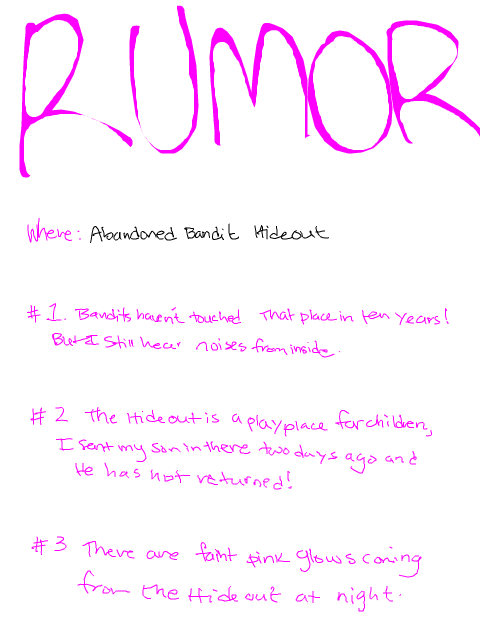 RUMOR
Where: Abandoned Bandit Hideout
#1. Bandits haven't touched That place in ten years!
But I still hear noises from inside.
#2 The Hideout is a playplace for children,
I sent my son in there two days ago and
He has not returned!
#3 There are faint pink glows coming
from the Hideout at night.